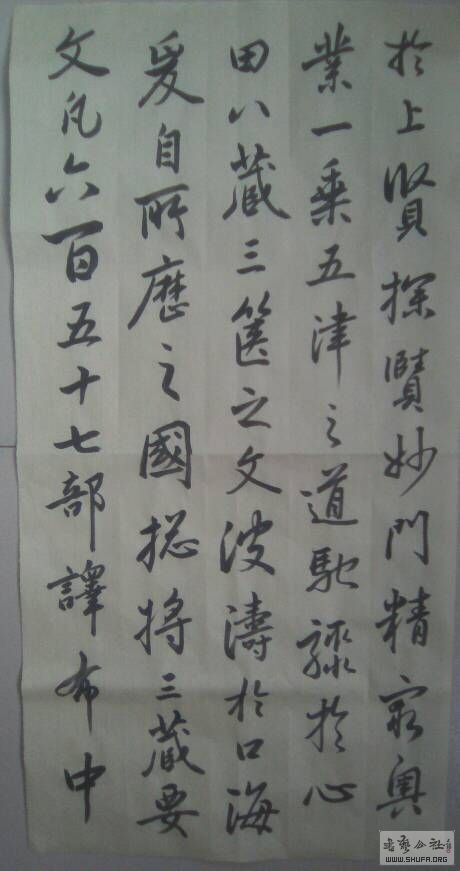 於上賢探賾妙門精窮奧
業一乘五津之道馳驟於心
田八藏三篋之文波濤於口海
爰自所歷之國揔將三藏要
文凡六百五十七部譯布中
書藝公社
WWW.SHUFA.ORG